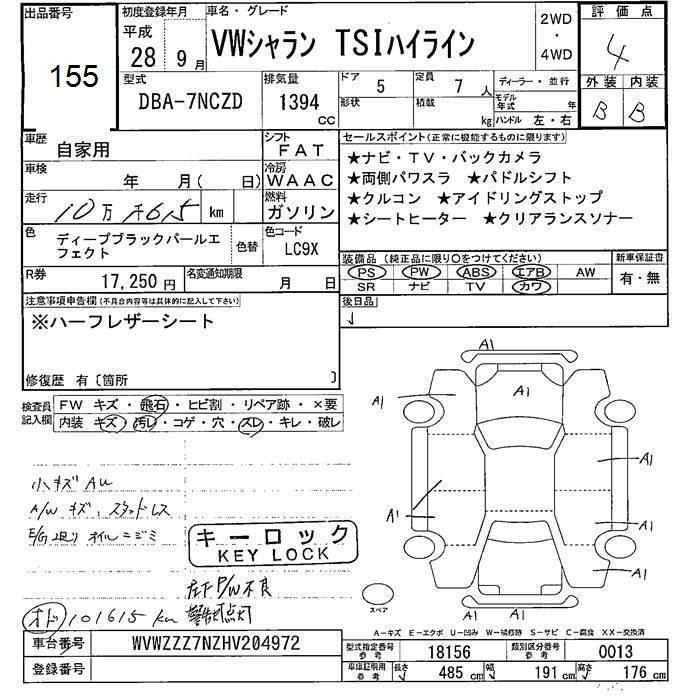 出品番号
155
初度登録年月
平成
28年9月
車名・グレード
VWシャラン TSIハイライン
2WD
・
4WD
評価点
4
外装 内装
B B
型式
DBA-7NCZD
排気量
1394
CC
ドア 5
形状
定員 7人
積載 kg
ディーラー・並行
モデル年式 年
ハンドル 左・右
車歴
自家用
シフト
FAT
車検
年 月( 日)
冷房
WAAC
走行
10万 千615 km
燃料
ガソリン
色
ディープブラックパールエフェクト
色替
色コード
LC9X
R券
17,250円
名変通知期限
月 日
セールスポイント(正常に機能するものに限ります)
★ナビ・TV・バックカメラ
★両側パワスラ ★パドルシフト
★クルコン ★アイドリングストップ
★シートヒーター ★クリアランスソナー
装備品(純正品に限り○をつけてください)
PS PW ABS エアB AW
SR ナビ TV カワ
新車保証書
有・無
後日品
注意事項申告欄(不具合内容等は具体的に記入して下さい)
※ハーフレザーシート
修復歴 有〔箇所 〕
検査員記入欄
FW キズ・飛石・ヒビ割・リペア跡・×要
内装 キズ・汚レ・コゲ・穴・スレ・キレ・破レ
小キズ AU
A/W キズ、スタッドレス
E/G廻り オイルニジミ
キーロック
KEY LOCK
左下P/W不良
警告灯点灯
オド 101615 km
A1
A1
A1
A1
A1
A1
A1
A1
A1
スペア
A-キズ E-エクボ U-凹み W-補修跡 S-サビ C-腐食 XX-交換済
車台番号
WVWZZZ7NZHV204972
登録番号
型式指定番号
参考
18156
類別区分番号
参考
0013
車庫証明用
参考
長さ 485 cm 幅 191 cm 高さ 176 cm